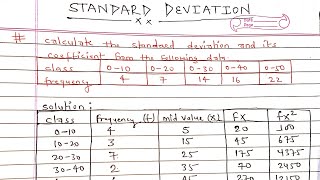 STANDARD DEVIATION
# calculate the standard deviation and its
coefficient from the following data
class 0-10 0-20 0-30 0-40 0-50
frequency 4 7 14 16 22
solution:
class frequency (f) mid value (x) fx fx²
0-10 4 5 20 100
10-20 3 15 45 675
20-30 7 25 175 4375
30-40 2 35 70 2450
45 270 12150